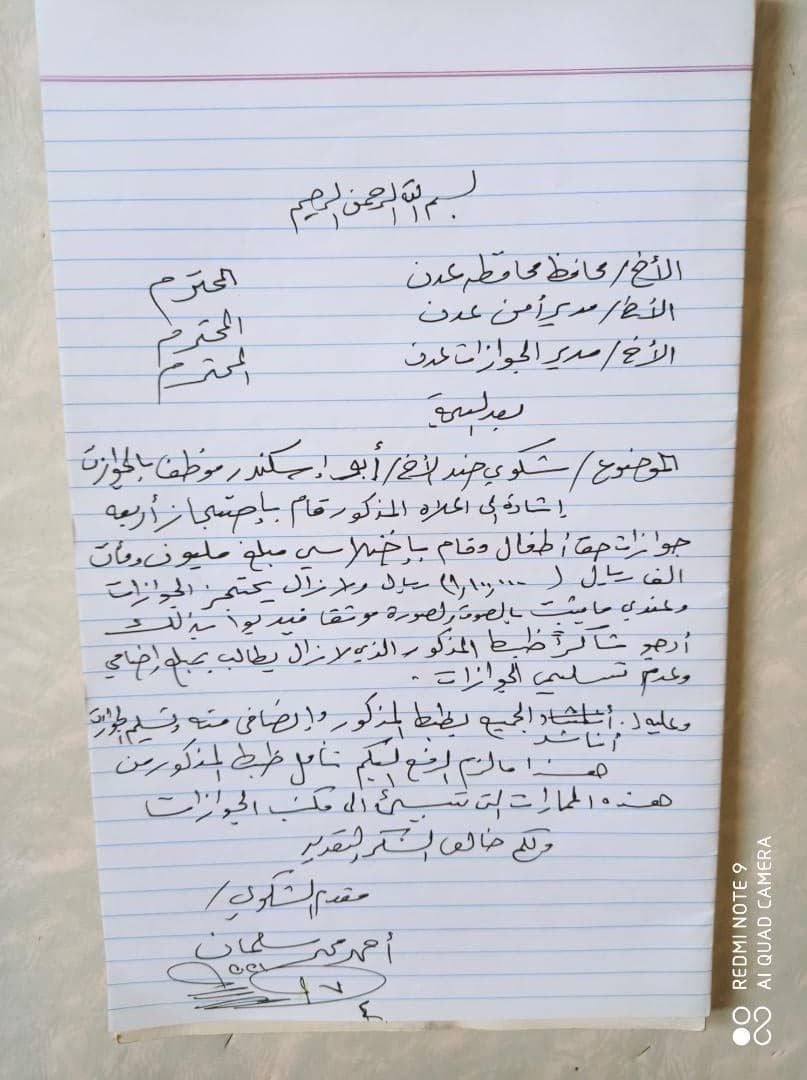 بسم الله الرحمن الرحيم
الأخ/ محافظ محافظه عدن المحترم
الأخ/ مدير أمن عدن المحترم
الأخ/ مدير الجوازات عدن المحترم
بعد التحية
الموضوع/ شكوي ضد الأخ/ أبو إسكندر موظف بالجوازت
إشارة الى اعلاه المذكور قام بإحتجاز أربعه
جوازات حق أطفال وقام بإختلاسي مبلغ مليون ومأت
الف ريال ( ريال ولازال يحتجز الجوازات
وعندي مايثبت بالصوت والصورة موثقا فيديوا بذلك
أرجو شاكراً ظبط المذكور الذي لازال يطالب بمبلغ إضافي
وعدم تسليمي الجوازات .
وعليه /. الجميع بظبط المذكور وإنصافي منه وتسليم الجوازات
أناشد
هذا مالزم الرفع اليكم نأمل ظبط المذكور من
هذه الممارات التي تسيئ الى مكتب الجوازات
ولكم خالص الشكر والتقدير
مقدم الشكوي/
أحمد محمد سلمان